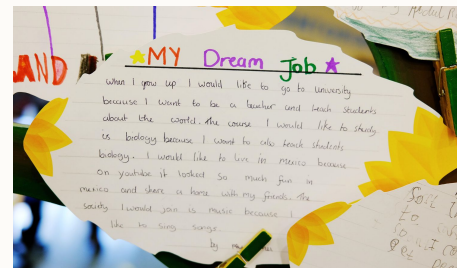 MY Dream Job
When I grow up I would like to go to university
because I want to be a teacher and teach students
about the world. The course I would like to study
is biology because I want to also teach students
biology. I would like to live in mexico because
on youtube it looked so much fun in
mexico and share a home with my friends. The
society I would join is music because I
like to sing songs.
by
AND